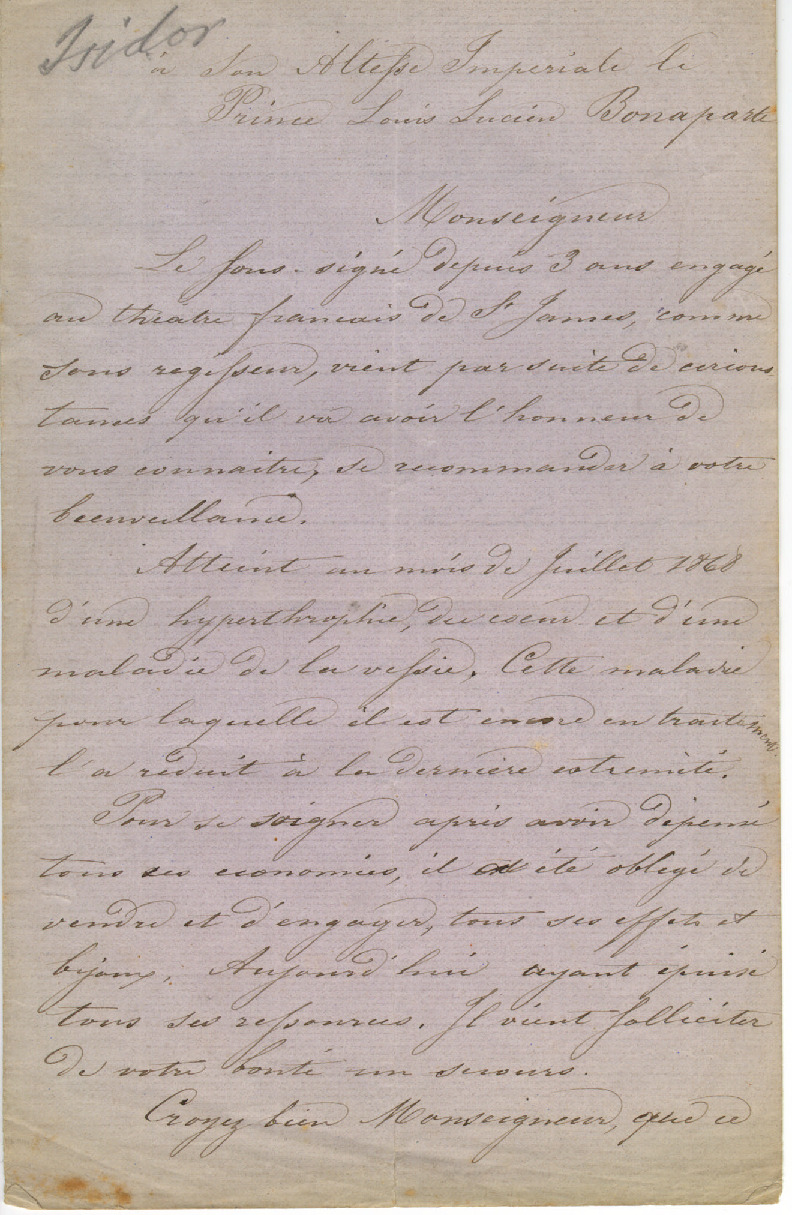 Isidor
à Son Altesse Imperiale le
Prince Louis Lucien Bonaparte
Monseigneur
Le sous-signé depuis 3 ans engagé
au théatre francais de St James, comme
sous regisseur, vient par suite de circons
tances qu'il va avoir l'honneur de
vous connaitre, se recommander à votre
bienveillance.
Atteint au mois de Juillet 1868
d'une hyperthrophie, du coeur et d'une
maladie de la vessie. Cette maladie
pour laquelle il est encore en traitement
l'a réduit à la dernière extremité.
Pour se soigner après avoir dépensé
tous ses economies, il a été obligé de
vendre et d'engager, tous ses effets et
bijoux; Aujourd'hui ayant épuisé
tous ses ressources. Il vient solliciter
de votre bonté un secours.
Croyez bien Monseigneur, que ce